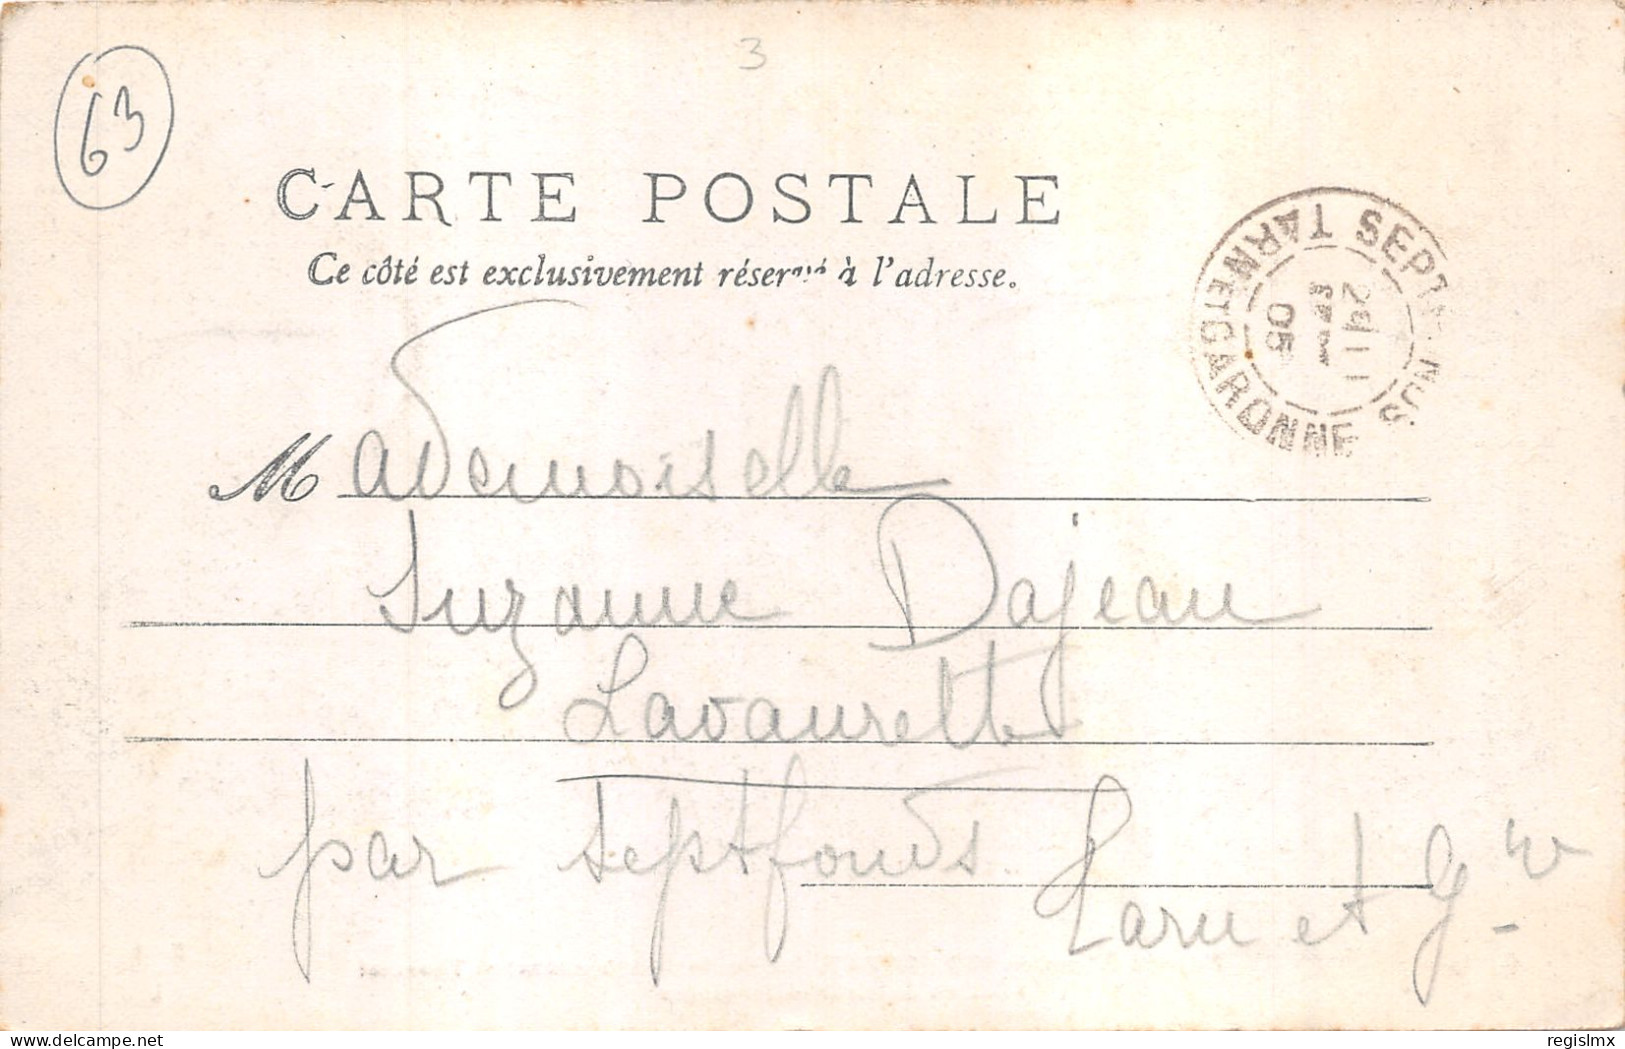 3
63
CARTE POSTALE
Ce côté est exclusivement réservé à l'adresse.
SEPTF
TARN ET GARONNE
05
Mademoiselle
Suzanne Dajean
Lavaurette
par Septfonds
Tarn et G
delcampe.net
regislmx